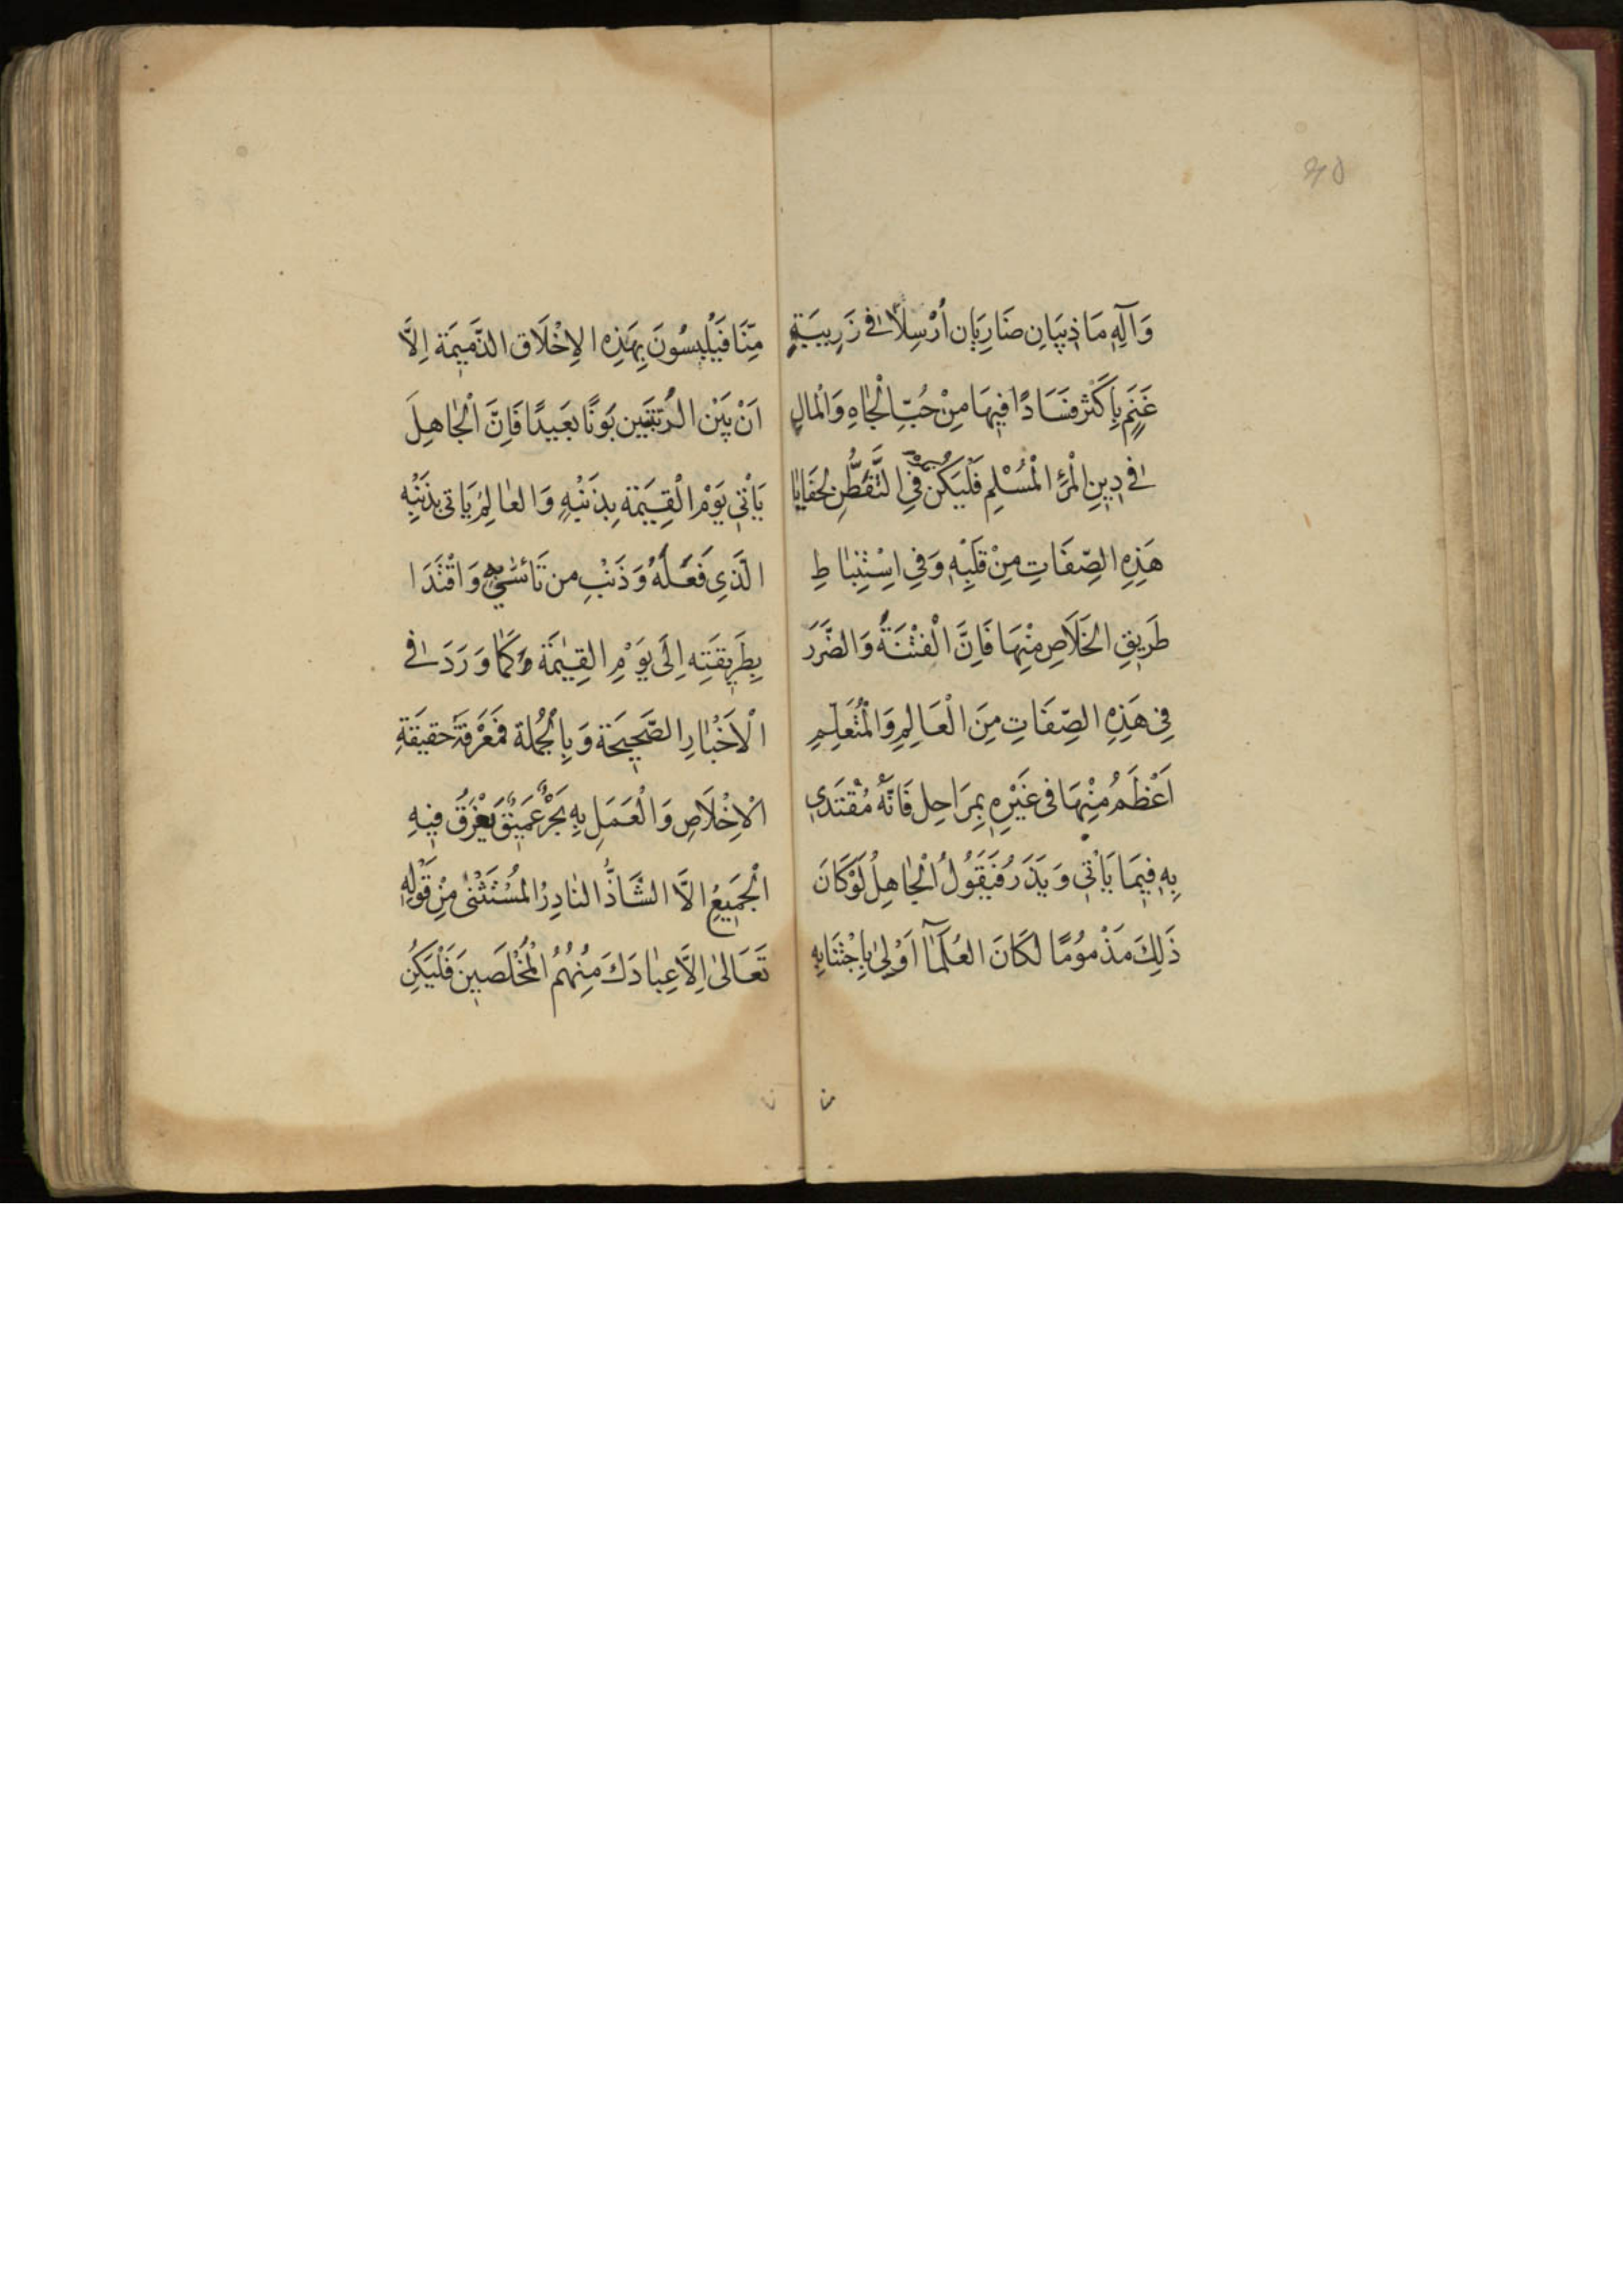 وَآلِهِ مَا ذِيبَانِ ضَارِيَانِ أُرْسِلَا فِي زَرِيبَةِ
غَنَمٍ بِاَكْثَرَ فَسَادًا فِيهَا مِنْ حُبِّ الْجَاهِ وَالْمَالِ
فِي دِينِ الْمَرْءِ الْمُسْلِمِ فَلْيَكُنْ فِي التَّفَطُّنِ لِخَفَايَا
هَذِهِ الصِّفَاتِ مِنْ قَلْبِهِ وَفِي اِسْتِنْبَاطِ
طَرِيقِ الخَلَاصِ مِنْهَا فَاِنَّ الْفِتْنَةَ وَالضَّرَرَ
فِي هَذِهِ الصِّفَاتِ مِنَ الْعَالِمِ وَالْمُتَعَلِّمِ
اَعْظَمُ مِنْهَا فِى غَيْرِهِ بِمَرَاحِل فَاِنَّهُ مُقْتَدَي
بِهِ فِيمَا يَأْتِي وَيَذَرُ فَيَقُولُ الْجَاهِلُ لَوْ كَانَ
ذَلِكَ مَذْمُومًا لَكَانَ العُلَمَآا اَوْلىٰ بِاِجْتِنَابِهِ
مِنَّا فَيَلْبِسُونَ بِهَذِهِ الاِخْلَاق الذَّمِيمَة اِلَّا
اَنْ بَيْنَ الرُّتْبَتَيْنِ بَوْنًا بَعِيدًا فَاِنَّ الْجَاهِلَ
يَأْتِي يَوْمَ الْقِيَمَة بِذَنْبِهِ وَالعَالِمُ يَاتى بِذَنْبِهِ
الَّذِي فَعَلَهُ وَذَنْبِ من تَأَسّٰي بِهِ وَاقْتَدَا
بِطَرِيقَتِه اِلَى يَوْمِ القِيٰمَةِ كَمَا وَرَدَ فِي
الْاَخْبَارِ الصَّحِيحَة وَبِالْجُمْلَة فَمَعْرِفَةُ حَقِيقَةِ
الْاِخْلَاصِ وَالْعَمَلِ بِهِ بَحْرٌ عَمِيقٌ يَغْرَقُ فِيهِ
الْجَمِيعُ اِلَّا الشَّاذُّ النَادِرُ المُسْتَثْنٰى مِنْ قَوْلِهِ
تَعَالىٰ اِلَّا عِبَادَكَ مِنْهُمُ الْمُخْلَصِينَ فَلْيَكُنِ